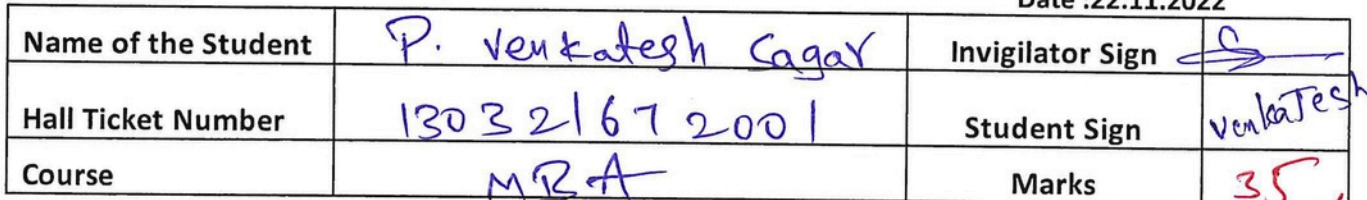 Date :22.11.2022
Name of the Student P. Venkatesh Sagar Invigilator Sign
Hall Ticket Number 130321672001 Student Sign Venkatesh
Course MBA Marks 35